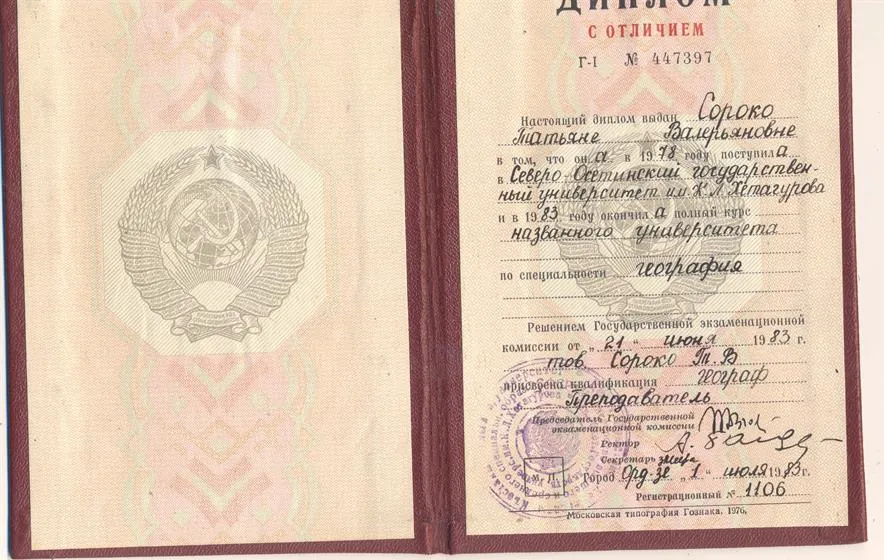 ДИПЛОМ
С ОТЛИЧИЕМ
Г-I № 447397
Настоящий диплом выдан Сороко
Татьяне Валерьяновне
в том, что она в 1978 году поступила
в Северо-Осетинский государствен-
ный университет им. К.Л. Хетагурова
и в 1983 году окончила полный курс
названного университета
по специальности география
Решением Государственной экзаменационной
комиссии от „21“ июня 1983 г.
тов. Сороко Т.В
присвоена квалификация географ
Преподаватель
Председатель Государственной
экзаменационной комиссии
Ректор
Секретарь
Город Орд-зе „1“ июля 1983 г.
Регистрационный № 1106
Московская типография Гознака. 1976.